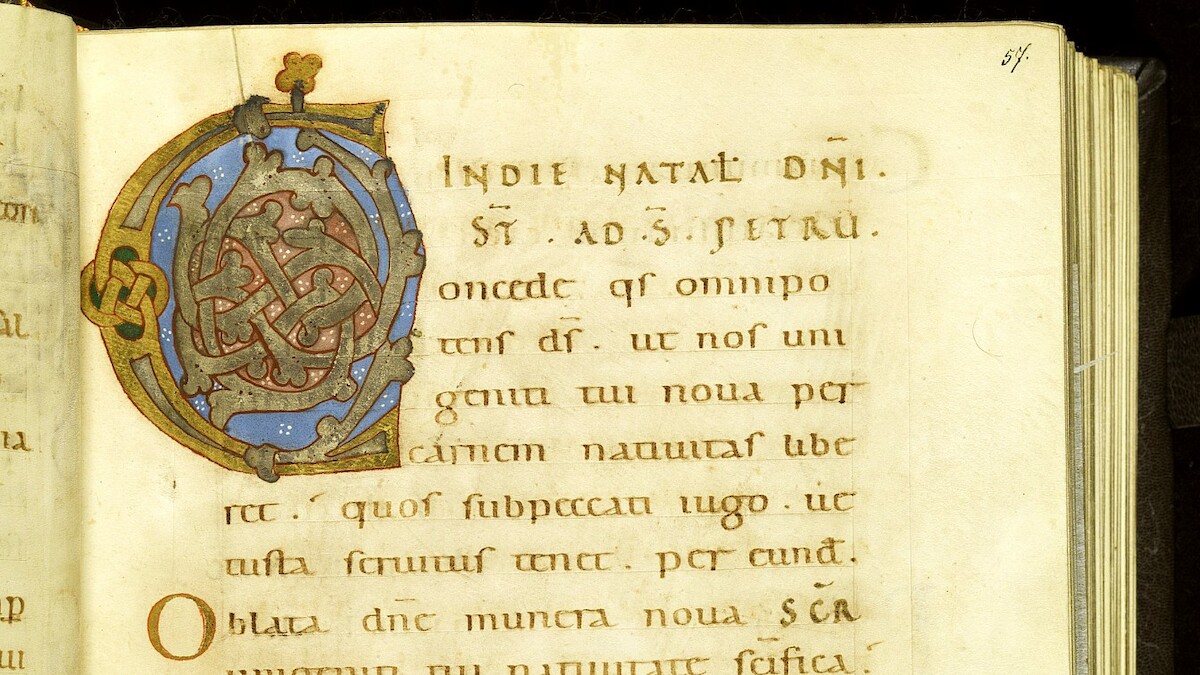 57.
IN DIE NATAL̄ DN̄I.
ST̄. AD. S̄. PETRU.
Concede qs omnipo
tens ds̄. ut nos uni
geniti tui noua per
carnem natiuitas libe
ret. quos subpeccati iugo. ue
tusta seruitus tenet. per eund̄.
Oblata dn̄e munera noua SC̄R
unigeniti tui natiuitate sc̄ifica.